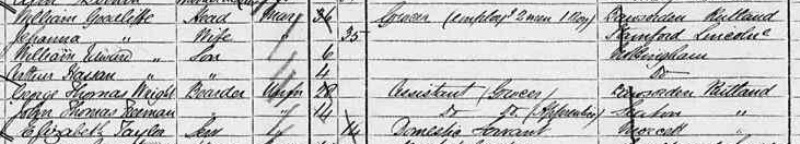 William Goodliffe Head Mar 36 Grocer (employs 2 men 1 boy) Rutland
Johanna " Wife 35 Stamford Lincolne
William Edward " Son 6 Uppingham
Arthur " " 4 Do
George Thomas Wright Boarder Unm 28 Assistant (Grocer) Rutland
John Thomas Freeman " " 14 Do Do (Apprentice) Seaton "
Elizabeth Taylor Serv " 14 Domestic Servant Morcott "